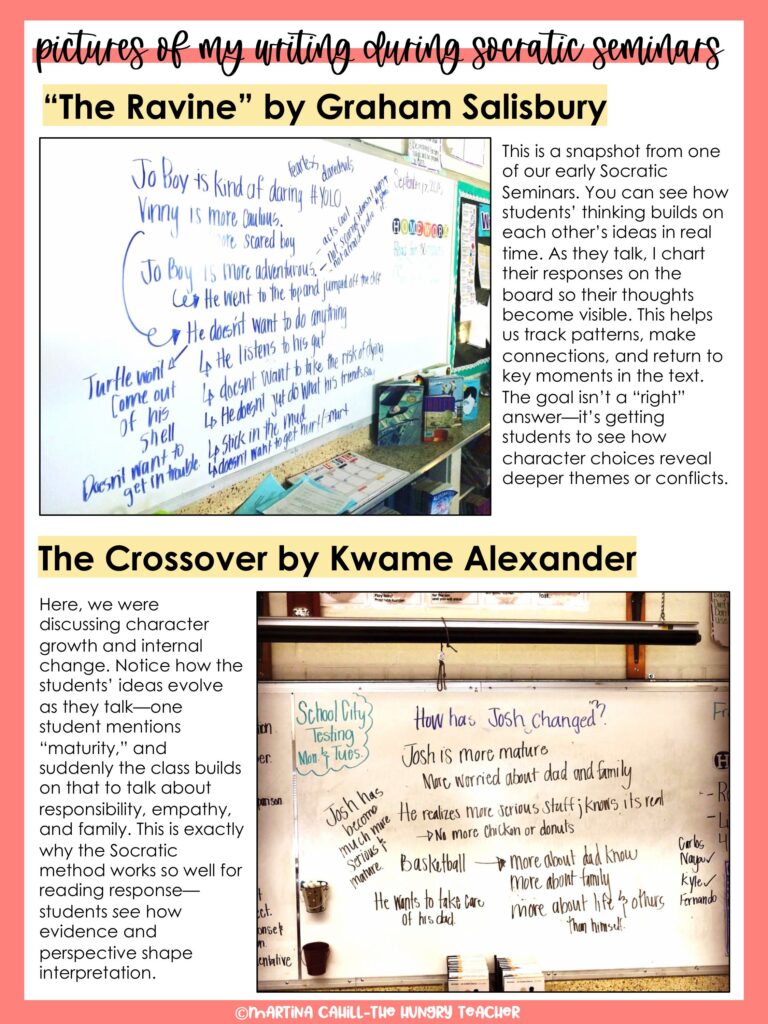 pictures of my writing during socratic seminars
“The Ravine” by Graham Salisbury
Jo Boy is kind of daring #YOLO
fearless daredevils
Vinny is more cautious.
more scared boy
Jo Boy is more adventurous.
acts cool
He went to the top and jumped off the cliff
He doesn't want to do anything
He listens to his gut
doesn't want to take the risk of dying
He doesn't just do what his friends say
Stick in the mud
doesn't want to get hurt/
Turtle won't
Come out
of his
shell
Doesn't want to
get in trouble.
September 17, 2015
HOMEWORK
This is a snapshot from one
of our early Socratic
Seminars. You can see how
students’ thinking builds on
each other’s ideas in real
time. As they talk, I chart
their responses on the
board so their thoughts
become visible. This helps
us track patterns, make
connections, and return to
key moments in the text.
The goal isn’t a “right”
answer—it’s getting
students to see how
character choices reveal
deeper themes or conflicts.
The Crossover by Kwame Alexander
Here, we were
discussing character
growth and internal
change. Notice how the
students’ ideas evolve
as they talk—one
student mentions
“maturity,” and
suddenly the class builds
on that to talk about
responsibility, empathy,
and family. This is exactly
why the Socratic
method works so well for
reading response—
students see how
evidence and
perspective shape
interpretation.
School City
Testing
Mon. & Tues.
How has Josh changed?
Josh is more mature
More worried about dad and family
Josh has
become
much more
serious &
mature.
He realizes more serious stuff & knows its real
→ No more chicken or donuts
Basketball → more about dad know
more about family
more about life & others
than himself.
He wants to take care
of his dad.
Carlos
Kyle
Fernando
©Martina Cahill-The Hungry Teacher